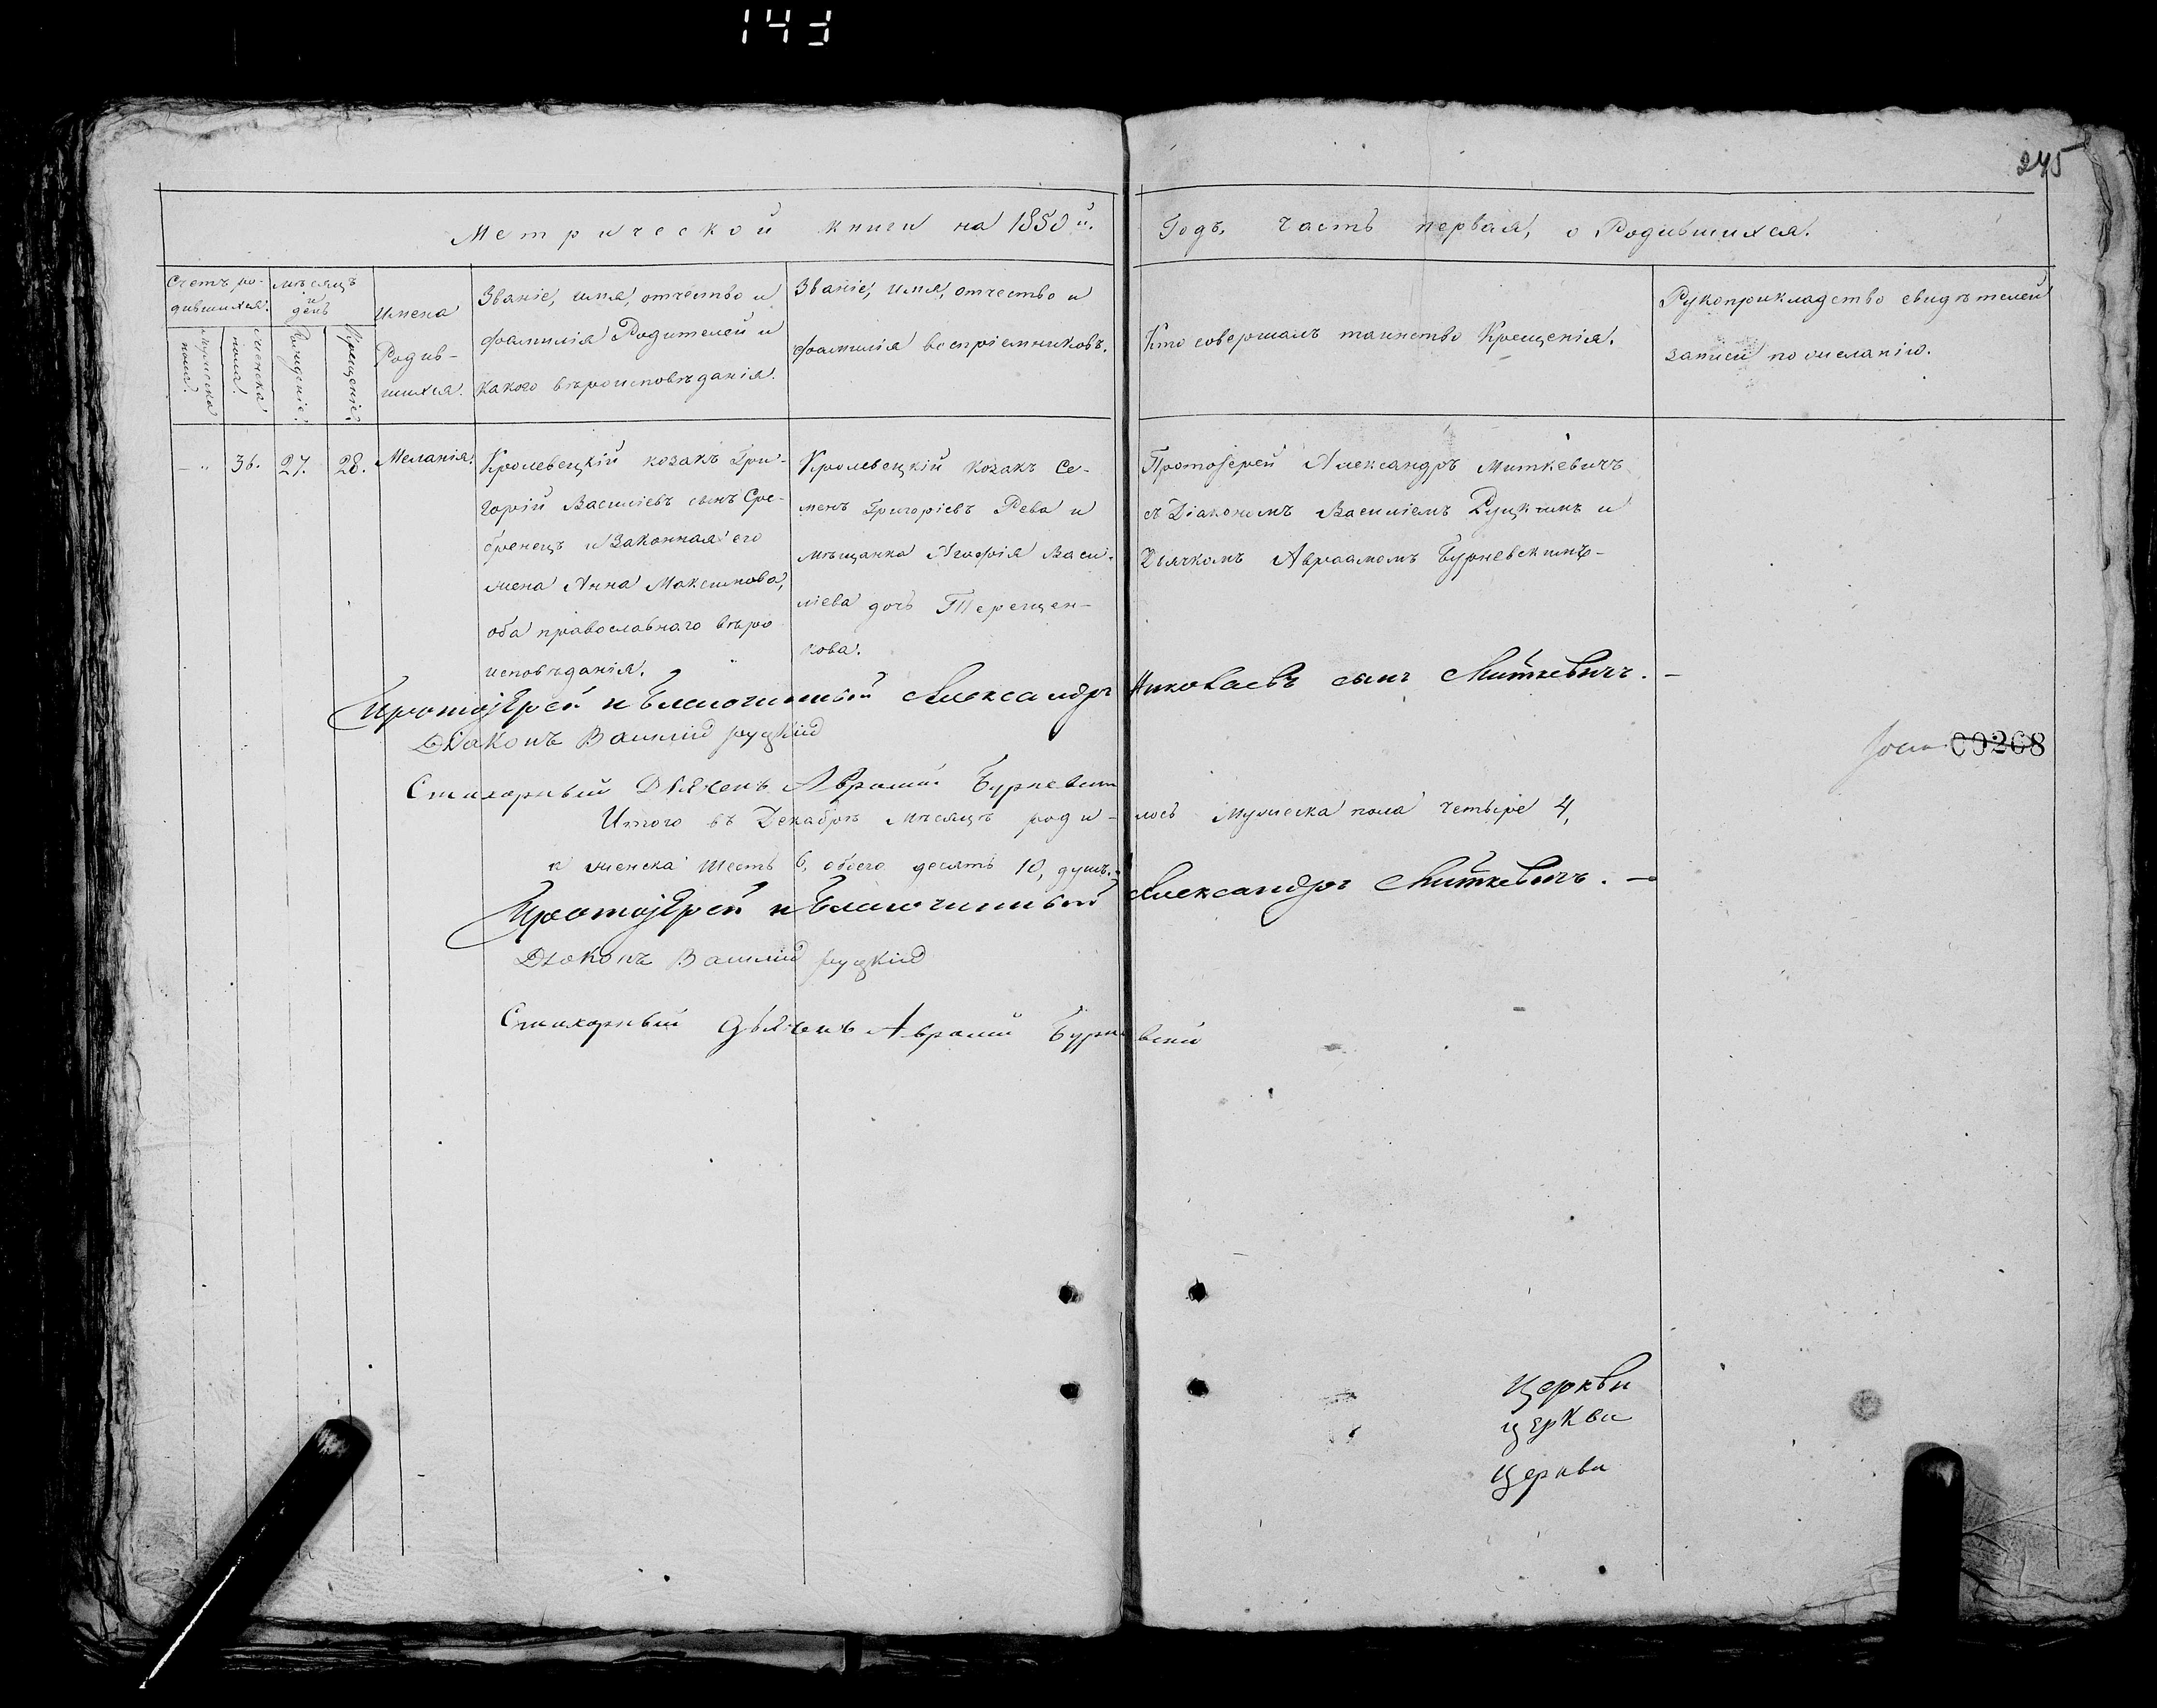 143
245
Метрической книги на 1850й. Годъ, часть первая, о Родившихся.
Счетъ ро-
дившихся.
мужеска
пола.
женска
пола.
мѣсяцъ
и
день
Рожденіе.
Крещеніе.
Имена
Родив-
шихся.
Званіе, имя, отчество и
фамилія Родителей и
какого вѣроисповѣданія.
Званіе, имя, отчество и
фамилія воспріемниковъ.
Кто совершалъ таинство Крещенія.
Рукоприкладство свидѣтелей
записи по желанію.
— „ 36. 27. 28. Меланія.
Кролевецкій козакъ Гри-
горій Василіевъ сынъ Сре-
бренецъ и Законная его
жена Анна Максимова,
оба православнаго вѣро
исповѣданія.
Кролевецкій козакъ Се-
менъ Григоріевъ Рева и
мѣщанка Агафія Васи-
ліева дочь Терещен-
кова.
Протоіерей Александръ Миткевичъ
съ Діакономъ Василіемъ Руцкимъ и
Дьячкомъ Авраамомъ Бурневскимъ-
Протоjерей и Благочинный Александръ Николаевъ сынъ Миткевичъ. —
Діаконъ Василій Руцкій
Стихарный Дьячекъ Аврамій
00268
Итого въ Декабрѣ мѣсяцѣ роди- лось мужеска пола четыре 4,
и женска шесть 6, обоего десять 10, душъ.
Протоjерей и Благочинный Александръ Миткевичъ. —
Діаконъ Василій Руцкій
Стихарный дьячекъ Аврамій Бурневскій
Церкви
церкви
Церкви